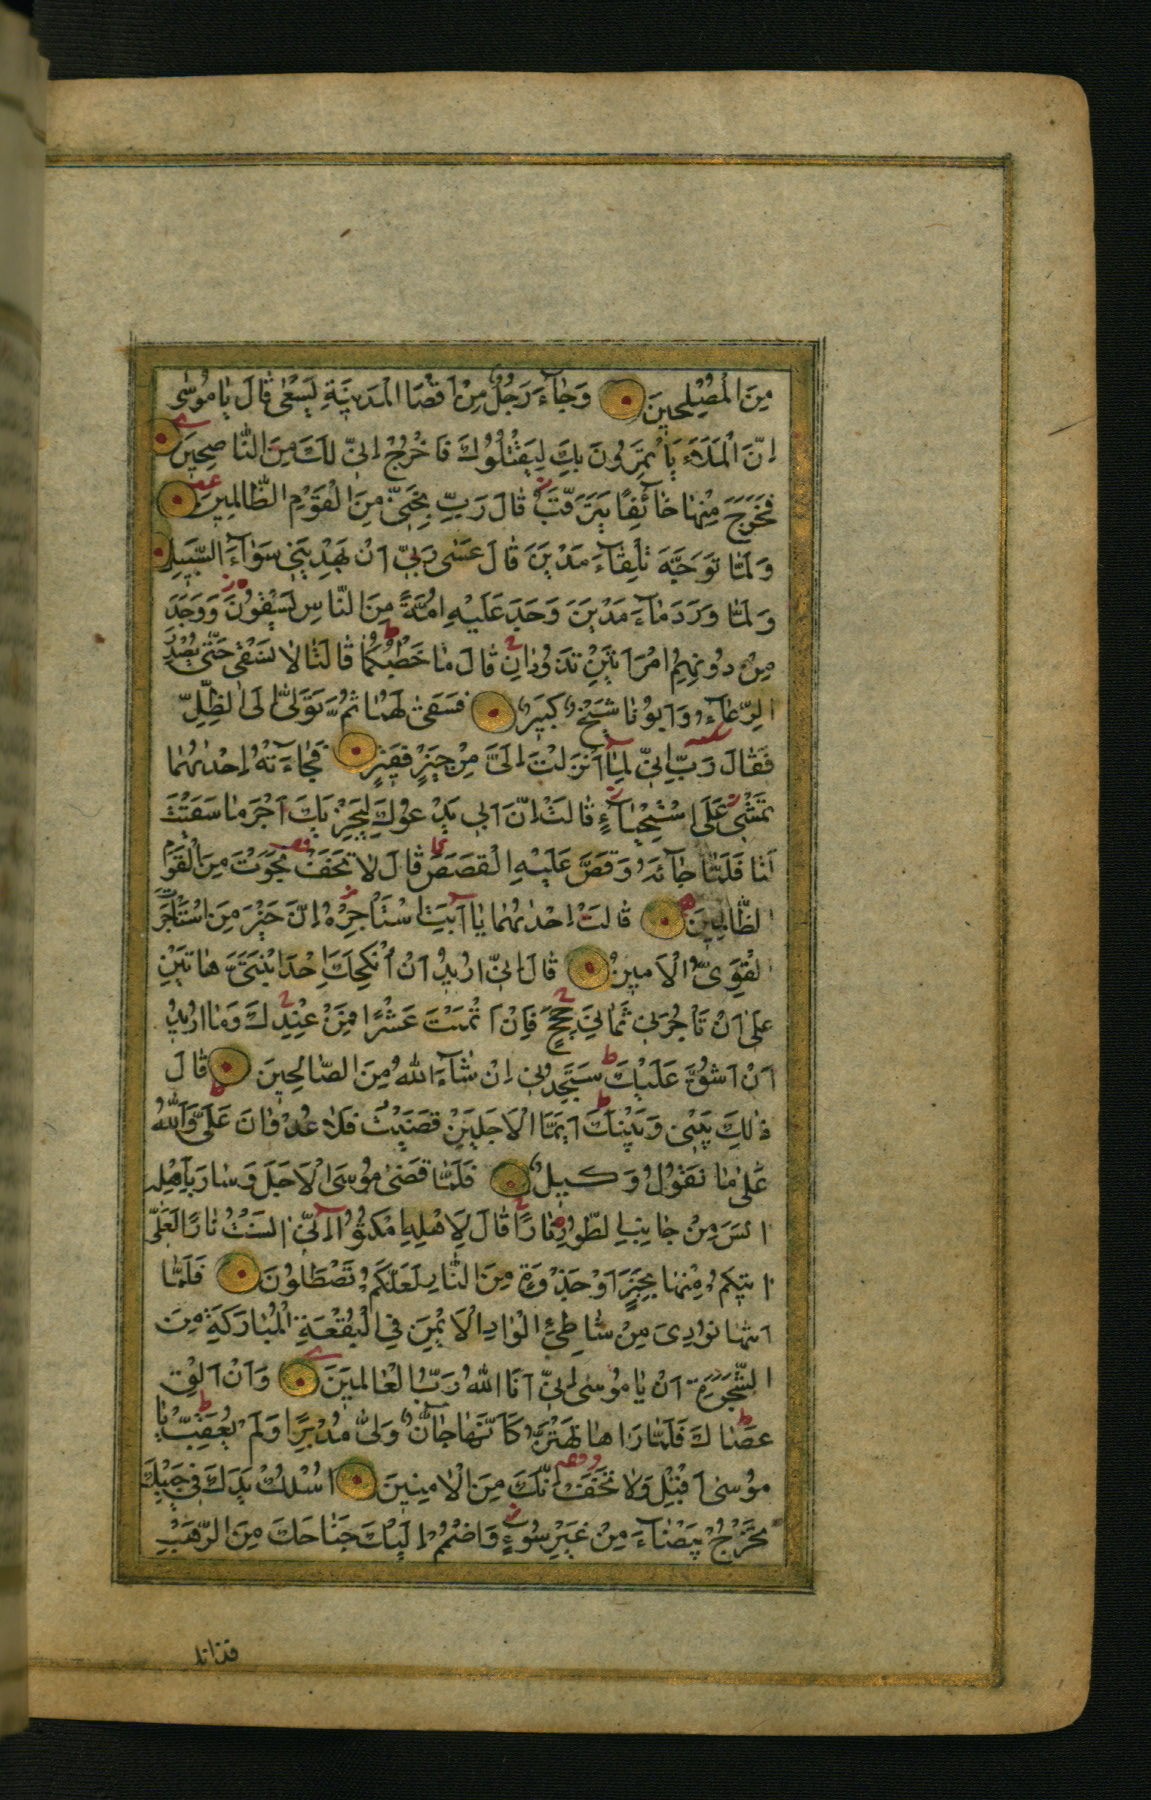 مِنَ الْمُصْلِحِينَ وَجَآءَ رَجُلٌ مِنْ اَقْصَا الْمَدِينَةِ يَسْعٰى قَالَ يَا مُوسٰى
اِنَّ الْمَلَاَءَ يَأْتَمِرُونَ بِكَ لِيَقْتُلُوكَ فَاخْرُجْ اِنِّي لَكَ مِنَ النَّاصِحِينَ
فَخَرَجَ مِنْهَا خَآئِفًا يَتَرَقَّبُ قَالَ رَبِّ نَجِّنِي مِنَ الْقَوْمِ الظَّالِمِينَ
وَلَمَّا تَوَجَّهَ تِلْقَآءَ مَدْيَنَ قَالَ عَسٰى رَبِّي اَنْ يَهْدِيَنِي سَوَآءَ السَّبِيلِ
وَلَمَّا وَرَدَ مَآءَ مَدْيَنَ وَجَدَ عَلَيْهِ اُمَّةً مِنَ النَّاسِ يَسْقُونَ وَوَجَدَ
مِنْ دُونِهِمُ امْرَاَتَيْنِ تَذُودَانِ قَالَ مَا خَطْبُكُمَا قَالَتَا لَا نَسْقِي حَتّٰى يُصْدِرَ
الرِّعَآءُ وَاَبُونَا شَيْخٌ كَبِيرٌ فَسَقٰى لَهُمَا ثُمَّ تَوَلّٰى اِلَى الظِّلِّ
فَقَالَ رَبِّ اِنِّي لِمَا اَنْزَلْتَ اِلَيَّ مِنْ خَيْرٍ فَقِيرٌ فَجَآءَتْهُ اِحْدٰيهُمَا
تَمْشِي عَلَى اسْتِحْيَآءٍ قَالَتْ اِنَّ اَبِي يَدْعُوكَ لِيَجْزِيَكَ اَجْرَ مَا سَقَيْتَ
لَنَا فَلَمَّا جَآءَهُ وَقَصَّ عَلَيْهِ الْقَصَصَ قَالَ لَا تَخَفْ نَجَوْتَ مِنَ الْقَوْمِ
الظَّالِمِينَ قَالَتْ اِحْدٰيهُمَا يَا اَبَتِ اسْتَأْجِرْهُ اِنَّ خَيْرَ مَنِ اسْتَأْجَرْتَ
الْقَوِيُّ الْاَمِينُ قَالَ اِنِّي اُرِيدُ اَنْ اُنْكِحَكَ اِحْدَى ابْنَتَيَّ هَاتَيْنِ
عَلٰى اَنْ تَأْجُرَنِي ثَمَانِيَ حِجَجٍ فَاِنْ اَتْمَمْتَ عَشْرًا فَمِنْ عِنْدِكَ وَمَا اُرِيدُ
اَنْ اَشُقَّ عَلَيْكَ سَتَجِدُنِي اِنْ شَآءَ اللهُ مِنَ الصَّالِحِينَ قَالَ
ذٰلِكَ بَيْنِي وَبَيْنَكَ اَيَّمَا الْاَجَلَيْنِ قَضَيْتُ فَلَا عُدْوَانَ عَلَيَّ وَاللهُ
عَلٰى مَا نَقُولُ وَكِيلٌ فَلَمَّا قَضٰى مُوسَى الْاَجَلَ وَسَارَ بِاَهْلِهِ
اٰنَسَ مِنْ جَانِبِ الطُّورِ نَارًا قَالَ لِاَهْلِهِ امْكُثُوا اِنِّي اٰنَسْتُ نَارًا لَعَلِّي
اٰتِيكُمْ مِنْهَا بِخَبَرٍ اَوْ جَذْوَةٍ مِنَ النَّارِ لَعَلَّكُمْ تَصْطَلُونَ فَلَمَّا
اَتٰيهَا نُودِيَ مِنْ شَاطِئِ الْوَادِ الْاَيْمَنِ فِي الْبُقْعَةِ الْمُبَارَكَةِ مِنَ
الشَّجَرَةِ اَنْ يَا مُوسٰى اِنِّي اَنَا اللهُ رَبُّ الْعَالَمِينَ وَاَنْ اَلْقِ
عَصَاكَ فَلَمَّا رَاٰهَا تَهْتَزُّ كَاَنَّهَا جَآنٌّ وَلّٰى مُدْبِرًا وَلَمْ يُعَقِّبْ يَا
مُوسٰى اَقْبِلْ وَلَا تَخَفْ اِنَّكَ مِنَ الْاٰمِنِينَ اُسْلُكْ يَدَكَ فِي جَيْبِكَ
تَخْرُجْ بَيْضَآءَ مِنْ غَيْرِ سُوءٍ وَاضْمُمْ اِلَيْكَ جَنَاحَكَ مِنَ الرَّهْبِ
فذانك